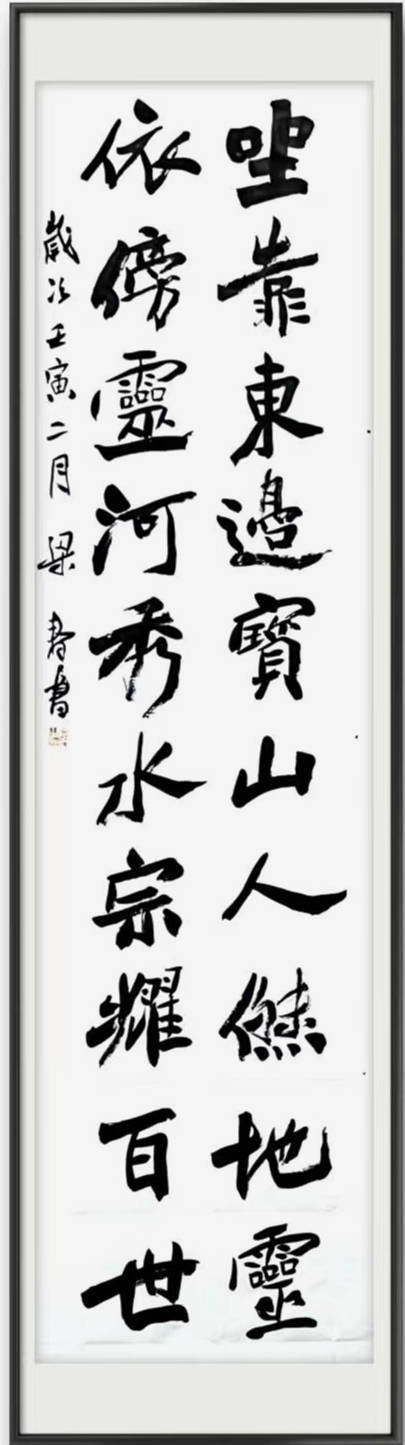 坐靠東邊寶山人傑地靈
依傍靈河秀水宗耀百世
歲次壬寅二月 梁 書